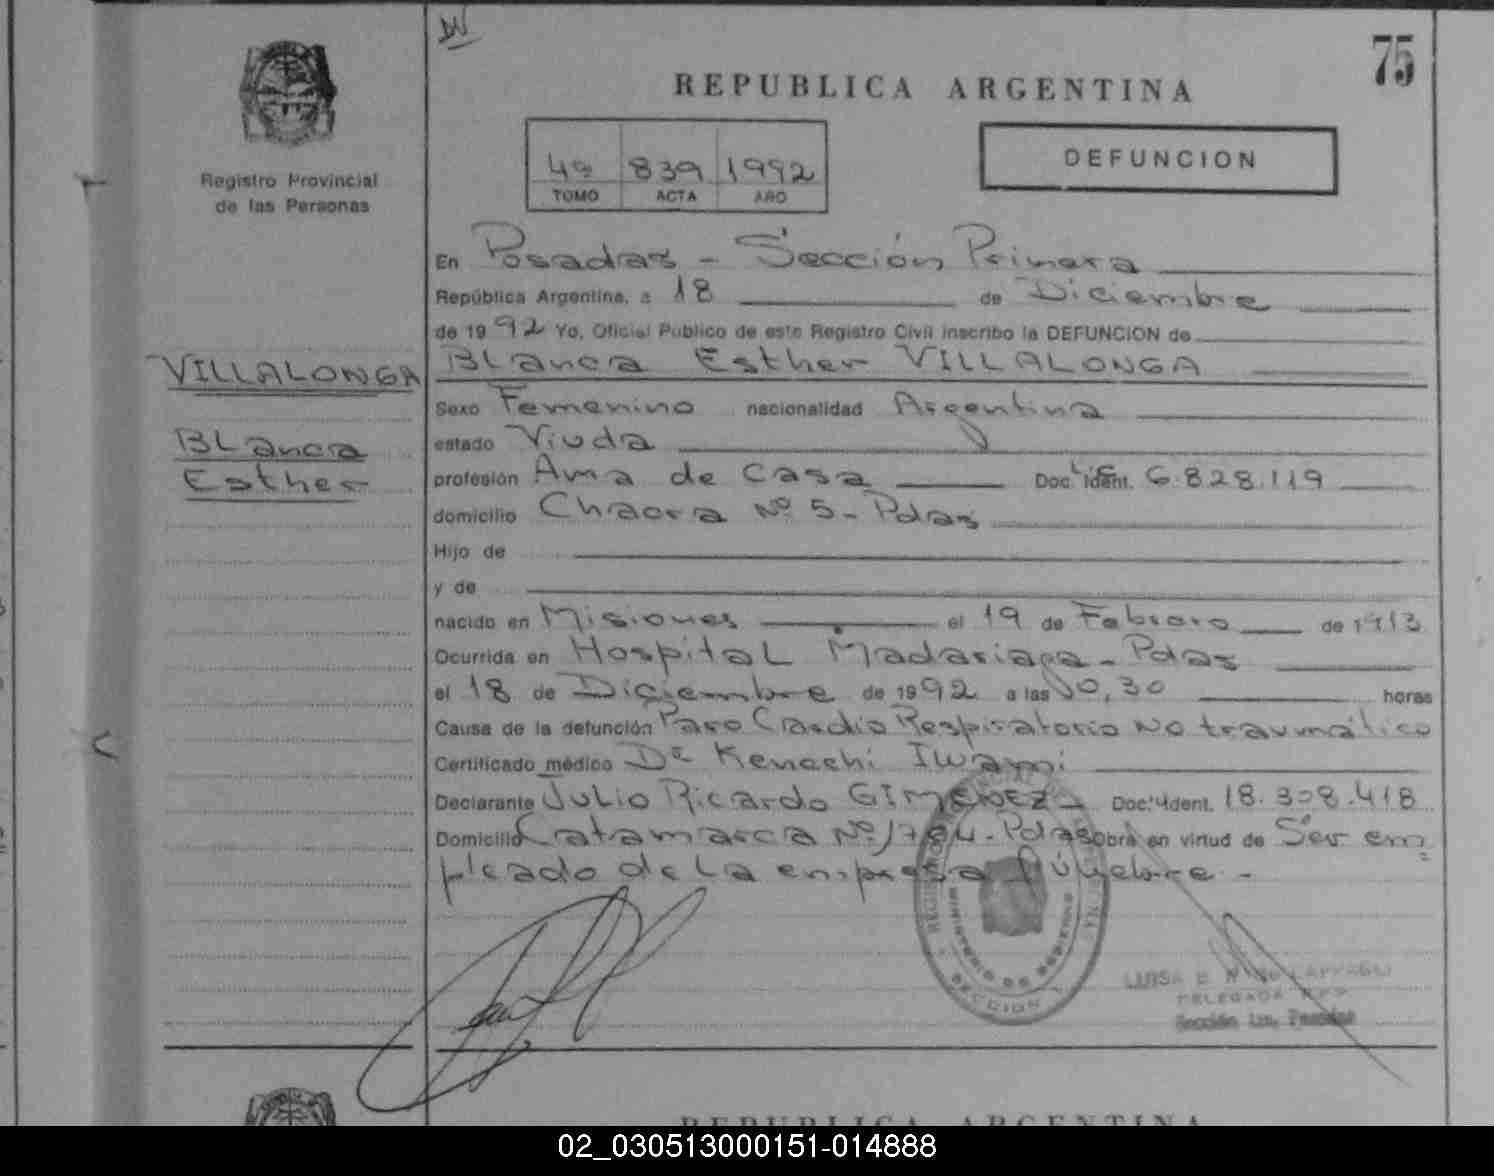 DV
75
REPUBLICA ARGENTINA
Registro Provincial
de las Personas
4º 839 1992
TOMO ACTA AÑO
DEFUNCION
En Posadas - Sección Primera
República Argentina, a 18 de Diciembre
de 1992 Yo, Oficial Público de este Registro Civil inscribo la DEFUNCION de
VILLALONGA
Blanca Esther VILLALONGA
Sexo Femenino nacionalidad Argentina
Blanca
estado Viuda
Esther
profesión Ama de casa Doc. Ident. 6.828.119
domicilio Chacra Nº 5 - Pdas
Hijo de
y de
nacido en Misiones el 19 de Febrero de 1913
Ocurrida en Hospital Madariaga - Pdas
el 18 de Diciembre de 1992 a las 00,30 horas
Causa de la defunción Paro Cardio Respiratorio No traumático
Certificado médico Dr Kenechi Iwami
Declarante Julio Ricardo GIMENEZ - Doc. Ident. 18.308.418
Domicilio Catamarca Nº 1784 - Pdas obra en virtud de Ser em=
pleado de la empresa fúnebre -
SECCION 1
LUISA
DELEGADA R.P.P.
Sección 1ra. Posadas
REPUBLICA ARGENTINA
02_030513000151-014888